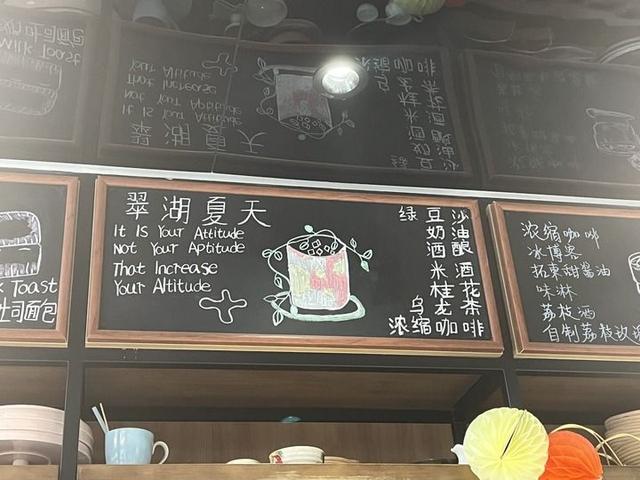 Toast
吐司面包
翠湖夏天
It Is Your Attitude
Not Your Aptitude
That Increase
Your Altitude
绿豆沙
奶油
酒酿
米酒
桂花
乌龙茶
浓缩咖啡
浓缩咖啡
冰博客
拓東甜醬油
味淋
荔枝酒
自制荔枝玫